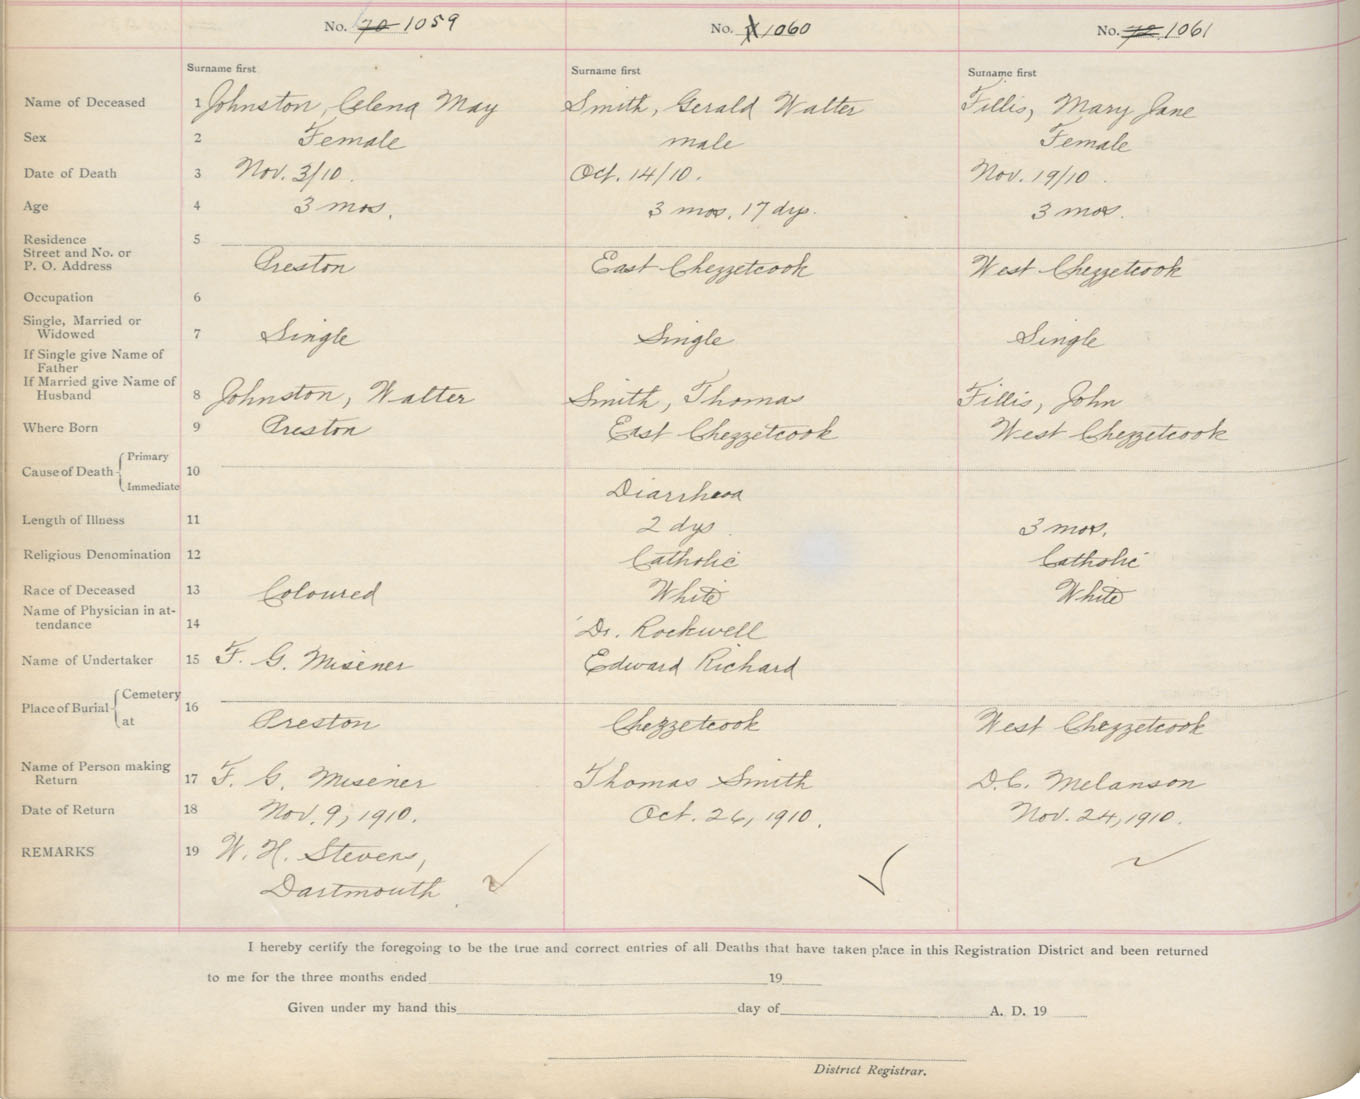 No. 70 1059 No. 71 1060 No. 72 1061
Surname first Surname first Surname first
Name of Deceased 1 Johnston, Celena May Smith, Gerald Walter Fillis, Mary Jane
Sex 2 Female male Female
Date of Death 3 Nov. 3/10. Oct. 14/10. Nov. 19/10.
Age 4 3 mos. 3 mos. 17 dys. 3 mos.
Residence 5
Street and No. or
P. O. Address Preston East Chezzetcook West Chezzetcook
Occupation 6
Single, Married or
Widowed 7 Single Single Single
If Single give Name of
Father
If Married give Name of
Husband 8 Johnston, Walter Smith, Thomas Fillis, John
Where Born 9 Preston East Chezzetcook West Chezzetcook
Primary
Cause of Death 10
Immediate Diarrhoea
Length of Illness 11 2 dys. 3 mos.
Religious Denomination 12 Catholic Catholic
Race of Deceased 13 Coloured White White
Name of Physician in at-
tendance 14 Dr. Rockwell
Name of Undertaker 15 F. G. Misener Edward Richard
Cemetery
Place of Burial 16
at Preston Chezzetcook West Chezzetcook
Name of Person making
Return 17 F. G. Misener Thomas Smith D.C. Melanson
Date of Return 18 Nov. 9, 1910. Oct. 26, 1910. Nov. 24, 1910.
REMARKS 19 W. H. Stevens,
Dartmouth
I hereby certify the foregoing to be the true and correct entries of all Deaths that have taken place in this Registration District and been returned
to me for the three months ended 19
Given under my hand this day of A. D. 19
District Registrar.